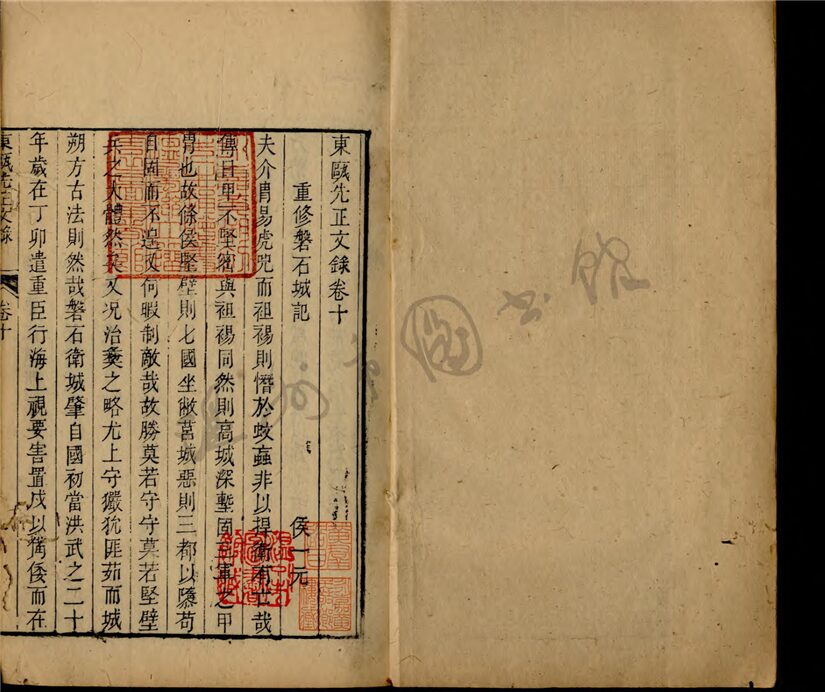 東甌先正文錄卷十
重修磐石城記
侯一元
夫介冑易虎兕而袒裼則憯於蚊蝱非以捍衞有亡哉
傳曰甲不堅密與袒裼同然則高城深壍固軍之甲
冑也故條侯堅壁則七國坐敝莒城惡則三都以隳苟
自固而不遑又何暇制敵哉故勝莫若守守莫若堅壁
兵之大體然矣又况治夷之略尤上守玁狁匪茹而城
朔方古法則然哉磐石衛城肇自國初當洪武之二十
年歲在丁卯遣重臣行海上視要害置戍以備倭而在
東甌先正文錄
卷十
圖書館